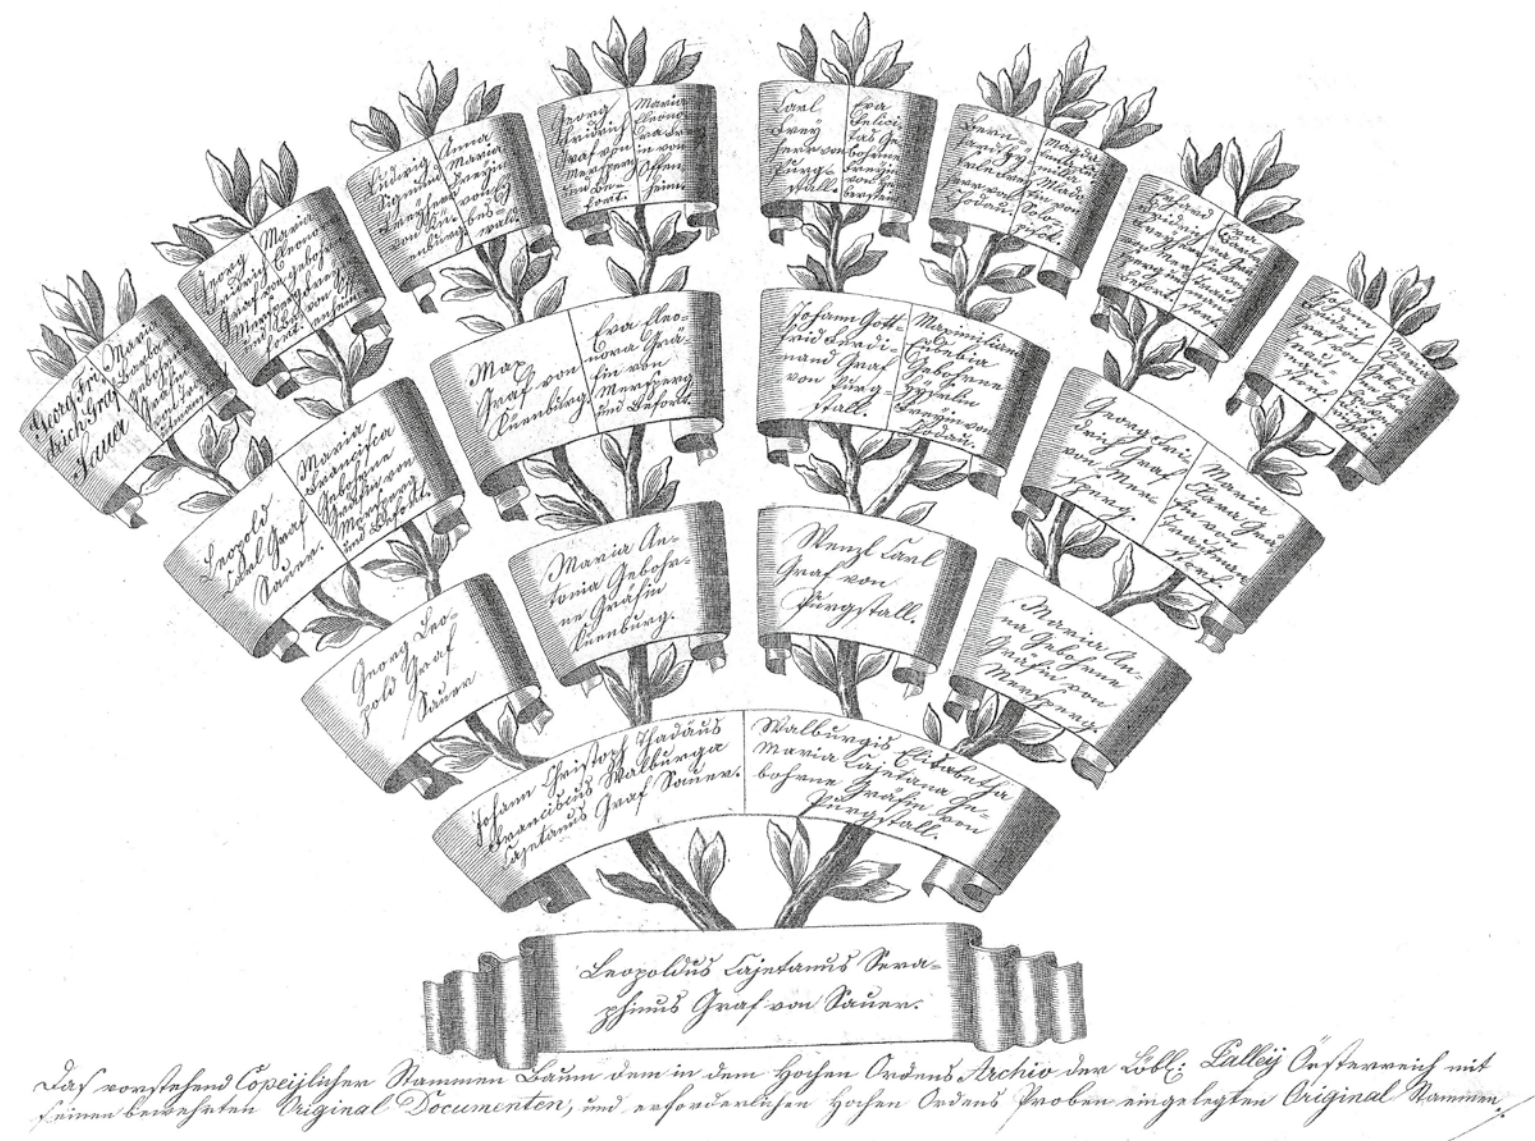 Georg Fri-
drich Graf
Sauer
Maria
Barbara
gebohrne
Gräfin
Georg
Fridrich
Graf von
Mersperg
und Be-
fort.
Maria
Eleono
ra gebohrne
Freyin
von Off-
enheim
Ludwig
Sigmund
Freyherr
von Kü-
enburg.
Anna
Maria
Freyin
von
bus-
wald
Georg
Fridrich
Graf von
Mersperg
und Be-
fort.
Maria
Eleono
ra Frey
in von
Offen
heim.
Carl
Freÿ
herr von
Purg-
stall.
Eva
Felici-
tas Ge-
bohrne
Freÿin
von He
berstein
Bern-
hard
herr von
Magda
lena
von
Johañ
Fridrich
Freyherr
von Mer
sperg und
Befort.
Eva
Barba
ra Grä
fin von
Traut
manstorf.
Johann
Fridrich
Graf von
Traut
man-
storf
Maria
Clara
Leopold
Carl Graf
Sauer.
Maria
Francisca
Gebohrne
Gräfin von
Mersperg
und Befort.
Max
Graf von
Küenburg.
Eva Eleo-
nora Grä-
fin von
Mersperg
und Befort.
Johann Gott-
frid Ferdi-
nand Graf
von Purg-
stall.
Maximiliana
Eusebia
Gebohrne
Freÿin von
Lodau.
Georg Fri-
drich Graf
von Mer-
sperg.
Maria
Clara Grä-
fin von
Trautman
storf.
Georg Leo-
pold Graf
Sauer
Maria An-
tonia Gebohr-
ne Gräfin
Küenburg.
Wenzl Carl
Graf von
Purgstall.
Maria An-
na Gebohrne
Gräfin von
Mersperg.
Johann Christoph Thadäus
Franciscus Walburga
Cajetanus Graf Sauer.
Walburgis Elisabetha
Maria Cajetana Ge-
bohrne Gräfin von
Purgstall.
Leopoldus Cajetanus Sera-
phinus Graf von Sauer.
Das vorstehend Copeylicher Stammen Baum dem in dem Hochen Ordens Archiv der Löbl: Balleÿ Oesterreich mit
seinen bewehrten Original Documenten, und erforderlichen Hochen Ordens Proben eingelegten Original Stammen